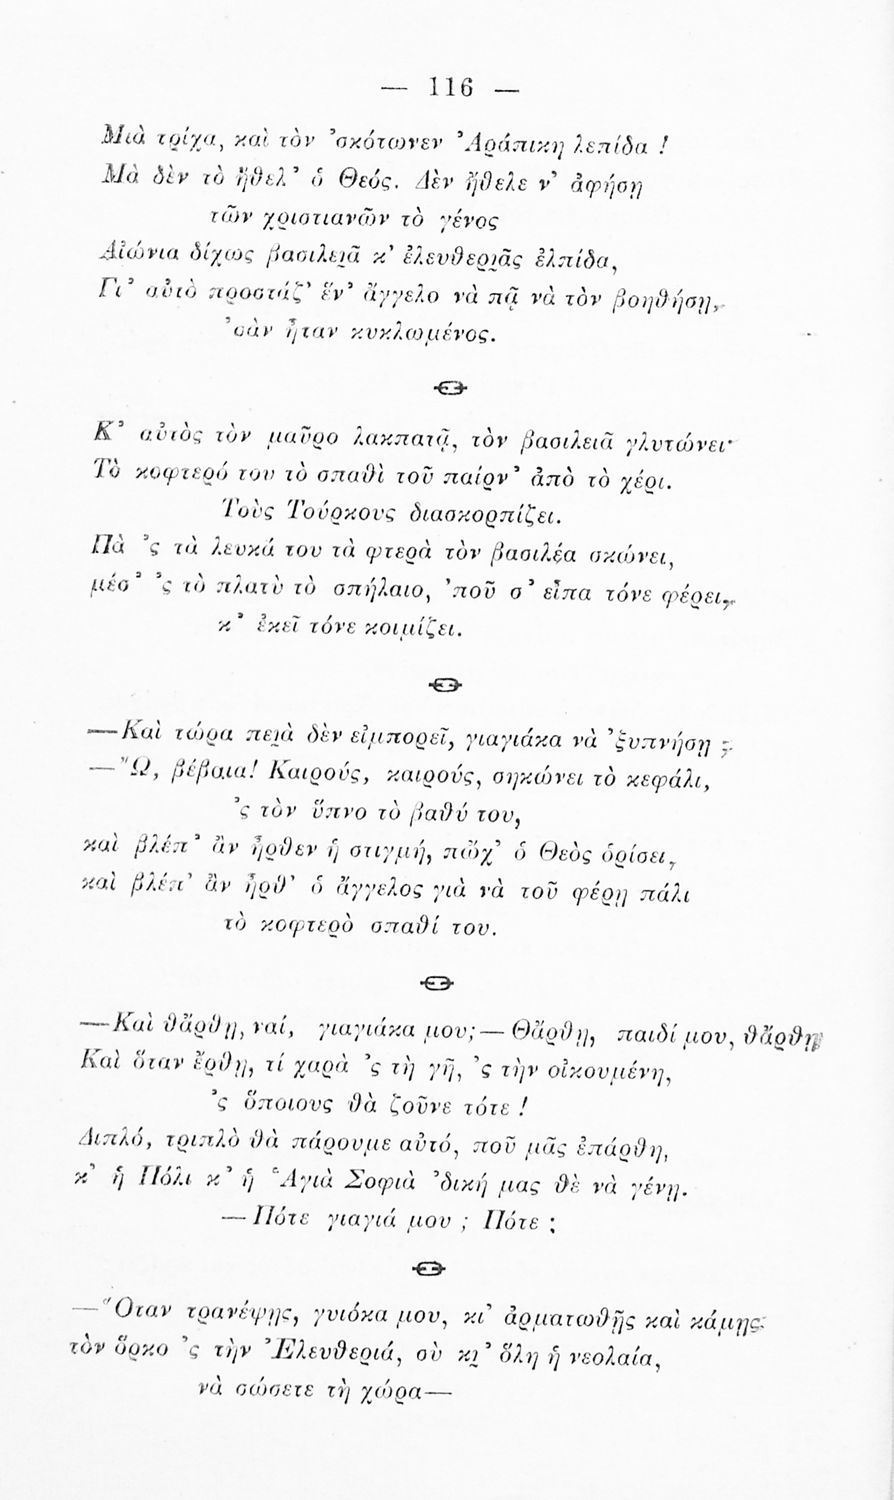 — 116 —
Μιὰ τρίχα, καὶ τὸν ᾿σκότωνεν ᾿Αράπικη λεπίδα !
Μὰ δὲν τὸ ἤθελ᾿ ὁ Θεός. Δὲν ἤθελε ν᾿ ἀφήσῃ
τῶν χριστιανῶν τὸ γένος
Αἰώνια δίχως βασιλειᾶ κ᾿ ἐλευθεριᾶς ἐλπίδα,
Γι᾿ αὐτὸ προστάζ᾿ ἕν᾿ ἄγγελο νὰ πᾷ νὰ τὸν βοηθήσῃ,
᾿σὰν ἦταν κυκλωμένος.
Κ᾿ αὐτὸς τὸν μαῦρο λακπατᾷ, τὸν βασιλειᾶ γλυτώνει·
Τὸ κοφτερό του τὸ σπαθὶ τοῦ παίρν᾿ ἀπὸ τὸ χέρι.
Τοὺς Τούρκους διασκορπίζει.
Πὰ ᾿ς τὰ λευκά του τὰ φτερὰ τὸν βασιλέα σκώνει,
μέσ᾿ ᾿ς τὸ πλατὺ τὸ σπήλαιο, ᾿ποῦ σ᾿ εἶπα τόνε φέρει,
κ᾿ ἐκεῖ τόνε κοιμίζει.
—Καὶ τώρα πειὰ δὲν εἰμπορεῖ, γιαγιάκα νὰ ᾿ξυπνήσῃ ;
—῎Ω, βέβαια! Καιρούς, καιρούς, σηκώνει τὸ κεφάλι,
᾿ς τὸν ὕπνο τὸ βαθύ του,
καὶ βλέπ᾿ ἂν ἦρθεν ἡ στιγμή, πὤχ᾿ ὁ Θεὸς ὁρίσει,
καὶ βλέπ᾿ ἂν ἦρθ᾿ ὁ ἄγγελος γιὰ νὰ τοῦ φέρῃ πάλι
τὸ κοφτερὸ σπαθί του.
—Καὶ θἄρθῃ, ναί, γιαγιάκα μου;— Θἄρθῃ, παιδί μου, θἄρθῃ
Καὶ ὅταν ἔρθῃ, τί χαρὰ ᾿ς τὴ γῆ, ᾿ς τὴν οἰκουμένη,
᾿ς ὅποιους θὰ ζοῦνε τότε !
Διπλό, τριπλὸ θὰ πάρουμε αὐτό, ποῦ μᾶς ἐπάρθη,
κ᾿ ἡ Πόλι κ᾿ ἡ ῾Αγιὰ Σοφιὰ ᾿δική μας θὲ νὰ γένῃ.
— Πότε γιαγιά μου ; Πότε ;
—῞Οταν τρανέψῃς, γυιόκα μου, κι᾿ ἀρματωθῇς καὶ κάμῃς
τὸν ὅρκο ᾿ς τὴν ᾿Ελευθεριά, σὺ κι᾿ ὅλη ἡ νεολαία,
νὰ σώσετε τὴ χώρα—